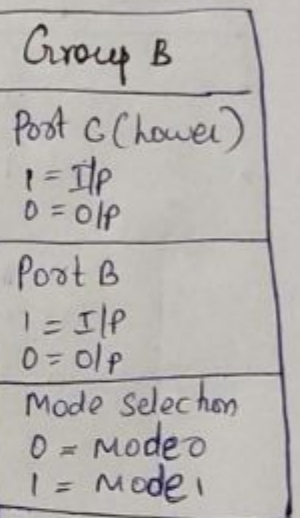 Group B
Port C (Lower)
1 = I/P
0 = O/P
Port B
1 = I/P
0 = O/P
Mode Selection
0 = Mode 0
1 = Mode 1